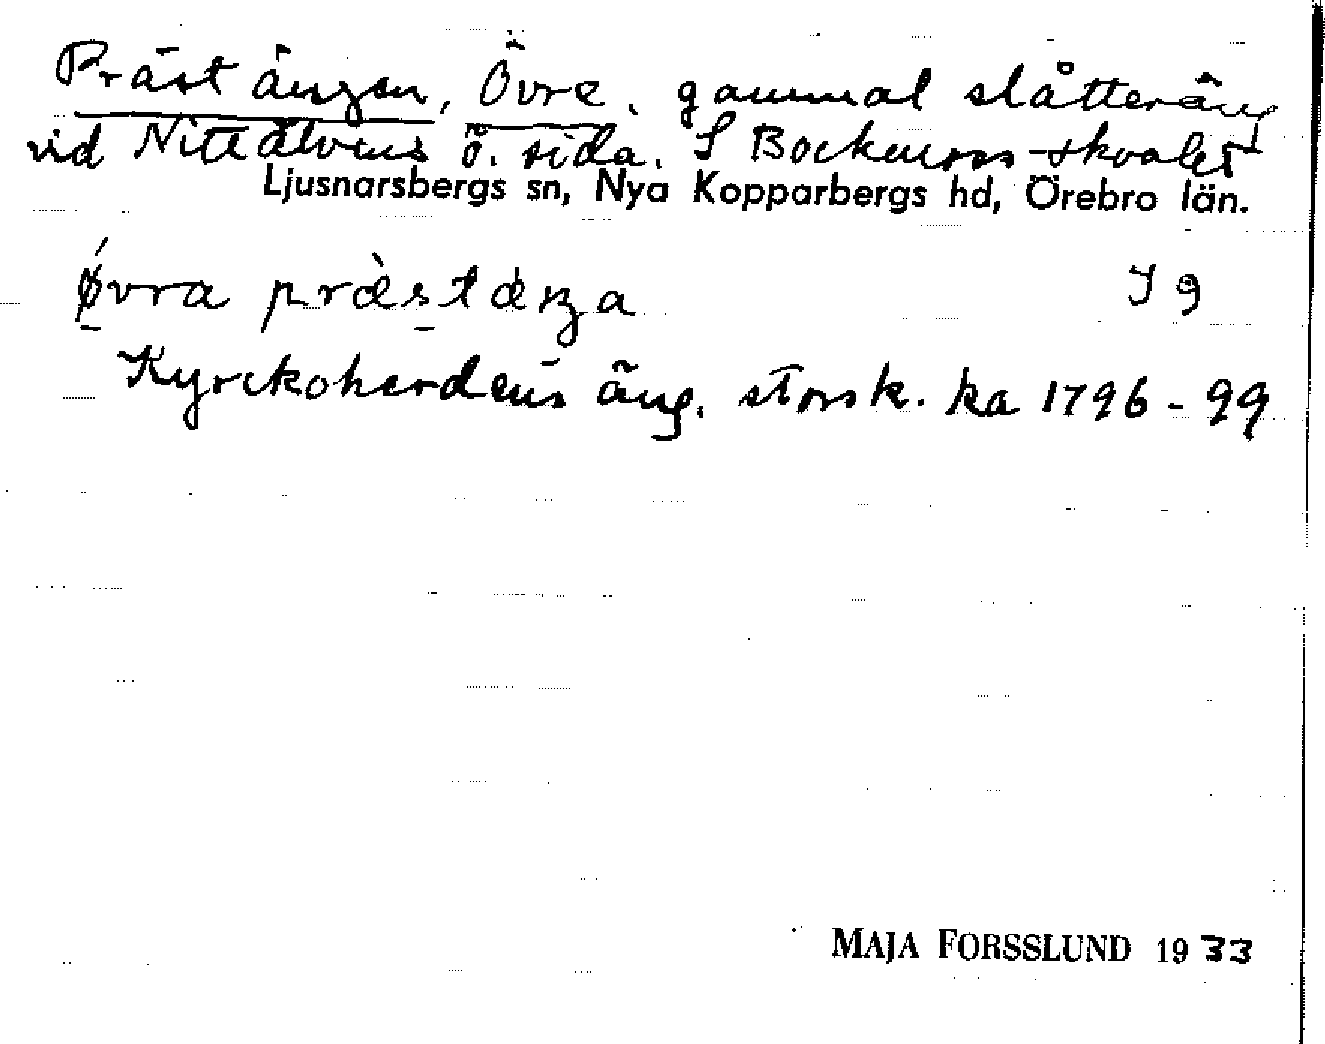 Prästängen, Övre. gammal slåtteräng
vid Nittälvens ö. sida. S Bockenoss-skvalet
Ljusnarsbergs sn, Nya Kopparbergs hd, Örebro län.
øvra præ̀stæŋa J 9
Kyrckoherdens äng. storsk. ka 1796-99
MAJA FORSSLUND 1933